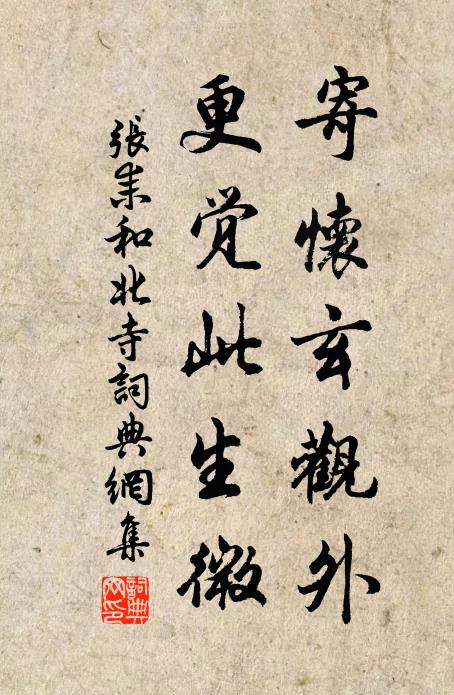 寄懷玄觀外
更覺此生微
張耒和北寺詞典網集
詞典網印